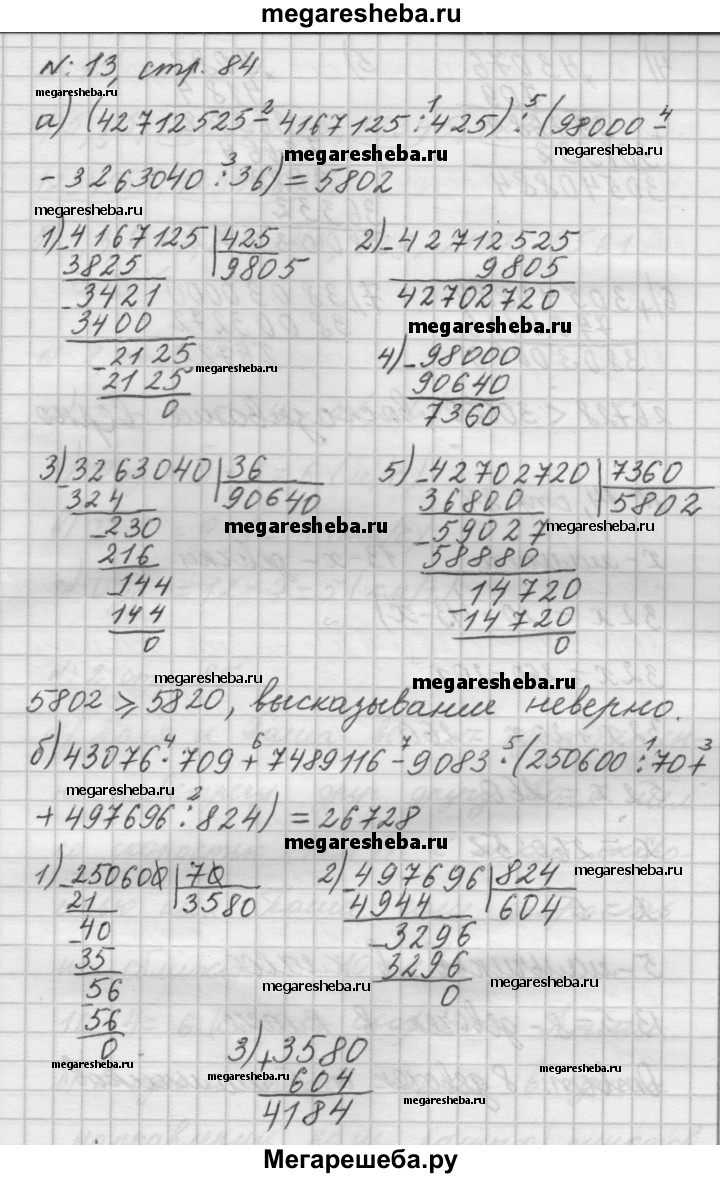 megaresheba.ru
N: 13, стр. 84
megaresheba.ru
а) (42712525 -² 4167125 :¹ 425) :⁵ (98000 -⁴
megaresheba.ru megaresheba.ru
- 3263040 :³ 36) = 5802
megaresheba.ru
1) - 4167125 | 425
3825 9805
- 3421
3400
- 2125
2125
0
megaresheba.ru
2) - 42712525
9805
42702720
megaresheba.ru
4) - 98000
90640
7360
3) - 3263040 | 36
324 90640
- 230
216
- 144
144
0
megaresheba.ru
5) - 42702720 | 7360
36800 5802
- 59027
58880
- 14720
14720
0
megaresheba.ru
megaresheba.ru
megaresheba.ru
5802 ⩾ 5820, высказывание неверно.
megaresheba.ru
б) 43076 ·⁴ 709 +⁶ 7489116 -⁷ 9083 ·⁵ (250600 :¹ 70 +³
+ 497696 :² 824) = 26728
megaresheba.ru
megaresheba.ru
1) - 250600 | 70
21 3580
- 40
35
- 56
56
0
2) - 497696 | 824
4944 604
- 3296
3296
0
megaresheba.ru
megaresheba.ru
megaresheba.ru
3) + 3580
604
4184
megaresheba.ru
megaresheba.ru
megaresheba.ru
Мегарешеба.ру